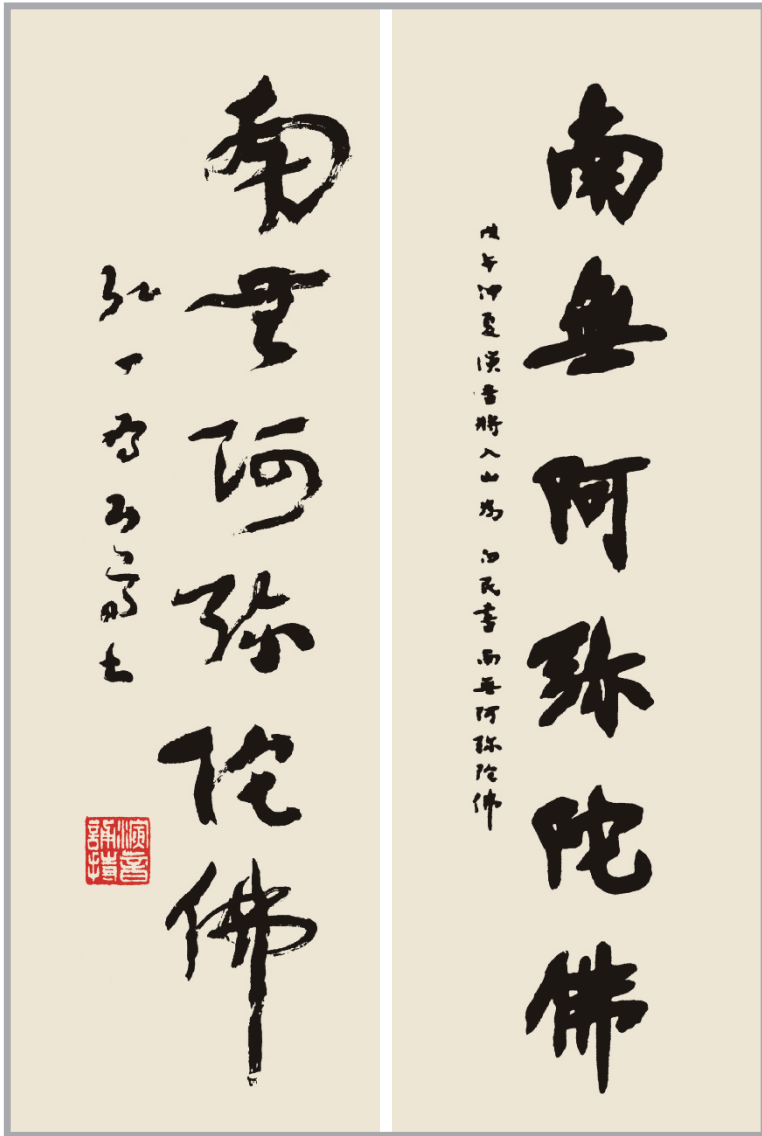 南無阿弥陀佛
戊午仲夏演音將入山為 白民書南無阿弥陀佛
南無阿弥陀佛
為 士
演音
誦持